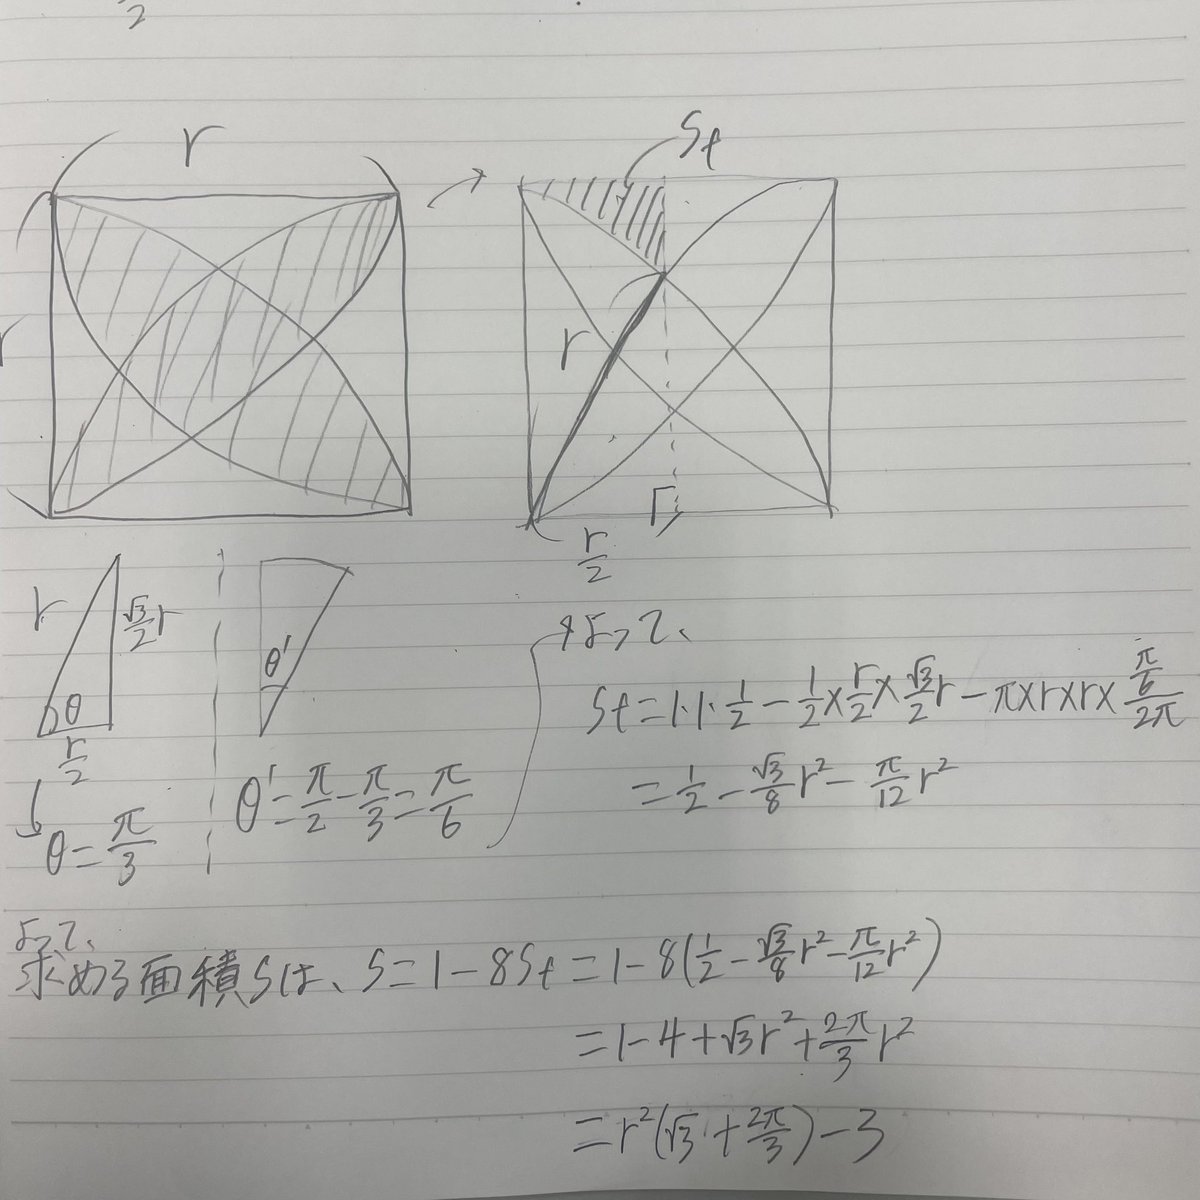 2
r
S_t
r
r
r/2
r
√3/2 r
θ
r/2
θ'
θ = π/3
θ' = π/2 - π/3 = π/6
よって、
S_t = 1·1·1/2 - 1/2 × r/2 × √3/2 r - π×r×r× (π/6)/(2π)
= 1/2 - √3/8 r² - π/12 r²
よって、
求める面積Sは、S = 1 - 8S_t = 1 - 8(1/2 - √3/8 r² - π/12 r²)
= 1 - 4 + √3 r² + 2π/3 r²
= r²(√3 + 2π/3) - 3